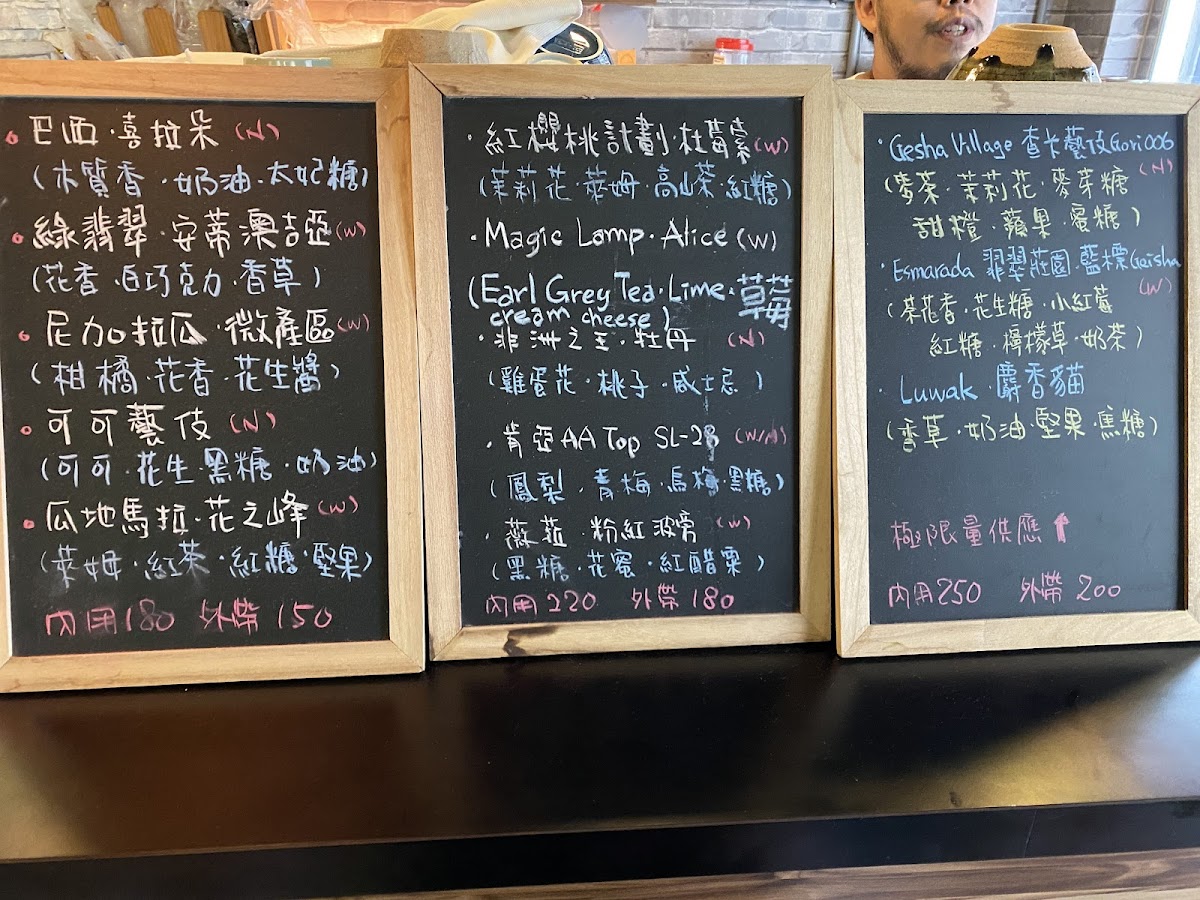 巴西·喜拉朵 (N)
(木質香·奶油·太妃糖)
綠翡翠·安蒂澳吉亞 (W)
(花香·白巧克力·香草)
尼加拉瓜·微產區 (W)
(柑橘·花香·花生醬)
可可藝伎 (N)
(可可·花生·黑糖·奶油)
瓜地馬拉·花之峰 (W)
(萊姆·紅茶·紅糖·堅果)
內用180 外帶150
·紅櫻桃計劃·杜莓索 (W)
(茉莉花·萊姆·高山茶·紅糖)
·Magic Lamp·Alice (W)
(Earl Grey Tea·Lime·草莓
cream cheese)
·非洲之王·牡丹 (N)
(雞蛋花·桃子·威士忌)
·肯亞AA Top SL-28 (W/N)
(鳳梨·青梅·烏梅·黑糖)
·薇菈·粉紅波旁 (W)
(黑糖·花蜜·紅醋栗)
內用220 外帶180
·Gesha Village 查卡藝伎Gori006
(N)
(麥茶·茉莉花·麥芽糖
甜橙·蘋果·蜜糖)
·Esmarada 翡翠莊園·藍標Geisha
(W)
(茶花香·花生糖·小紅莓
紅糖·檸檬草·奶茶)
·Luwak·麝香貓
(香草·奶油·堅果·焦糖)
極限量供應
內用250 外帶200